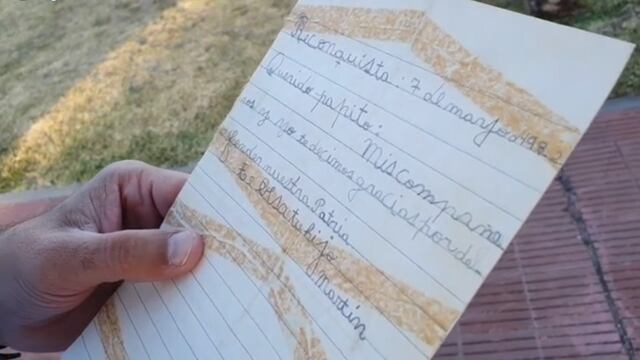 Reconquista: 7 de marzo 198
Querido papito:
Mis compañe
ros y yo te decimos gracias por de
fender nuestra Patria
te besa tu hijo
Martín